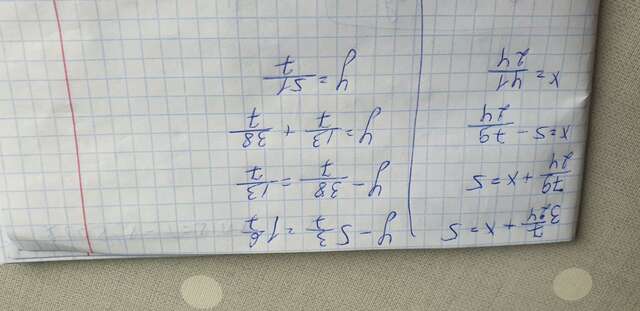 3 7/24 + x = 5
79/24 + x = 5
x = 5 - 79/24
x = 41/24
y - 5 3/7 = 1 6/7
y - 38/7 = 13/7
y = 13/7 + 38/7
y = 51/7